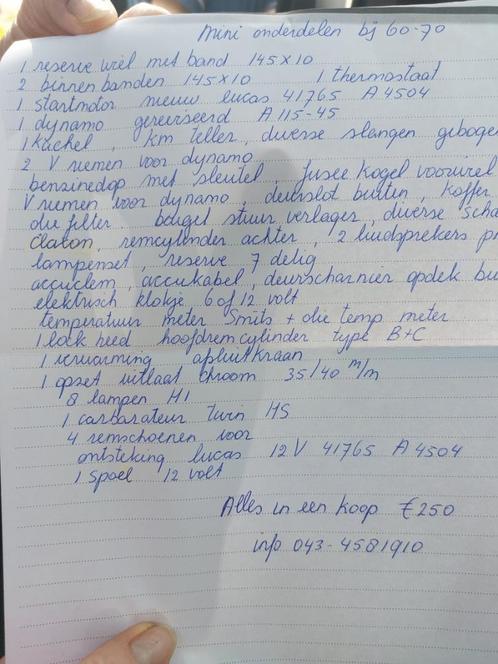 Mini onderdelen bj 60-70
1 reserve wiel met band 145x10
2 binnenbanden 145x10 1 thermostaat
1 startmotor nieuw lucas 41765 A4504
1 dynamo gereviseerd A115-45
1 kachel, km teller, diverse slangen geboge
2 V riemen voor dynamo
benzinedop met sleutel, fusee kogel voorwiel
V riemen voor dynamo, deurslot buiten, koffer
olie filter. beugel stuur verlager, diverse scha
claxon, remcylinder achter, 2 luidsprekers p
lampenset, reserve 7 delig
accuclem, accukabel, deurscharnier opdek bu
elektrisch klokje 6 of 12 volt
temperatuur meter Smits + olie temp meter
1 lock heed hoofdremcylinder type B+C
1 verwarming afsluitkraan
1 opzet uitlaat chroom 35/40 m/m
8 lampen H1
1 carburateur twin HS
4 remschoenen voor
ontsteking lucas 12V 41765 A4504
1 spoel 12 volt
Alles in een koop €250
info 043-4581910